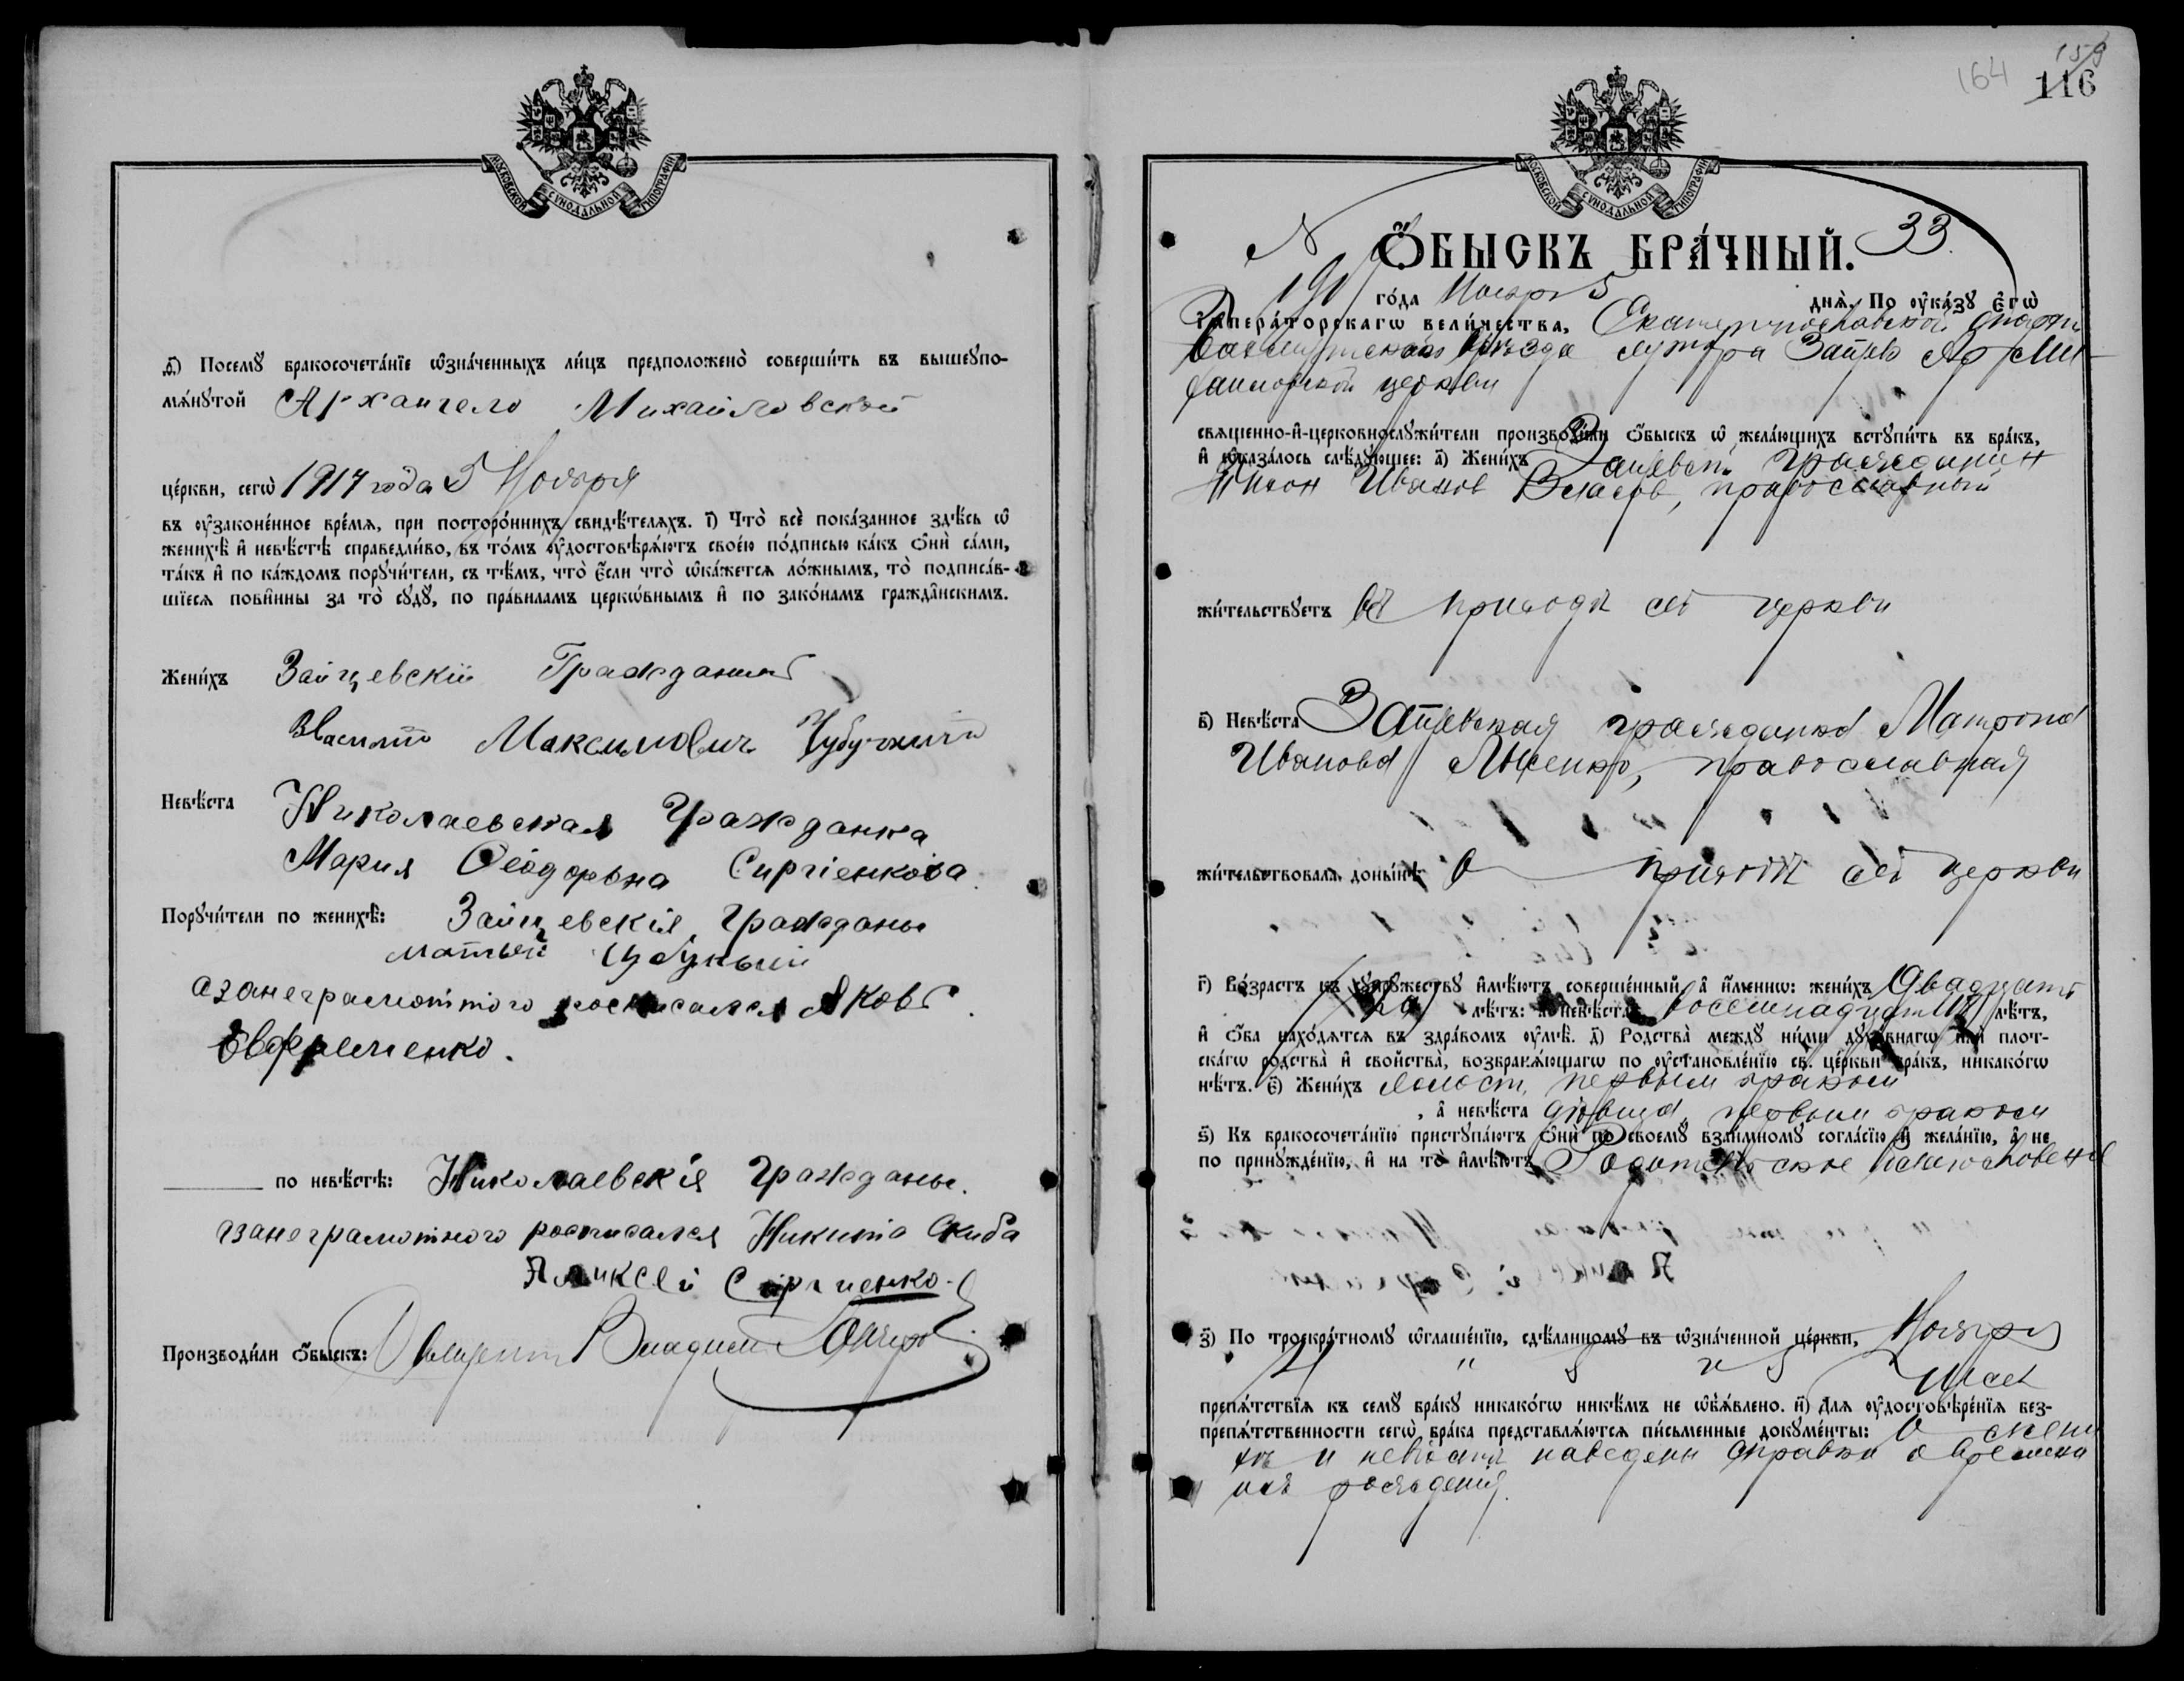 МОСКОВСКОЙ СѴНОДАЛЬНОЙ ТИПОГРАФІИ
ѳ҃) Посемꙋ бракосочета́нїе ѡ҆зна́ченныхъ ли́цъ предположено̀ соверши́ть въ вышеꙋпо-
мѧ́нꙋтой Архангело Михайловской
це́ркви, сегѡ̀ 1917 года 5 Ноября
въ ᲂу҆законе́нное вре́мѧ, при посторо́ннихъ свидѣ́телѧхъ. і҃) Что̀ всѐ пока́занное здѣ́сь ѡ҆
женихѣ̀ и҆ невѣ́стѣ справедли́во, въ то́мъ ᲂу҆достовѣрѧ́ютъ свое́ю по́дписью ка́къ ѻ҆нѝ са́ми,
та́къ и҆ по ка́ждомъ порꙋчи́тели, съ тѣ́мъ, что̀ є҆́сли что̀ ѡ҆ка́жетсѧ ло́жнымъ, то̀ подписа́в-
шїесѧ пови́нны за то̀ сꙋдꙋ̀, по пра́виламъ церко́внымъ и҆ по зако́намъ гражда́нскимъ.
Жени́хъ Зайцевскій Гражданинъ
Максимовичъ
Невѣ́ста Николаевская Гражданка
Мария Ѳеодоровна Сиргіенкова
Порꙋчи́тели по женихѣ̀: Зайцевскія граждане
матвей
азанеграмотного росписался Яковъ
Евфременко.
по невѣ́стѣ: Николаевскія Граждане.
азанеграмотного росписался Никита Скиба
Аликсей Сиргиенко
Производи́ли ѻ҆́быскъ: Владим
164 159
116
МОСКОВСКОЙ СѴНОДАЛЬНОЙ ТИПОГРАФІИ
N ѺБЫСКЪ БРА́ЧНЫЙ. 33.
191 го́да Ноября 5 днѧ̀. По ᲂу҆ка́зꙋ є҆гѡ̀
и҆мпера́торскагѡ вели́чества, Екатеринославской епархіи
Бахмутскаго уѣзда хутора Зайцево
церкви
свѧще́нно-и҆-церковнослꙋжи́тели производи́ли ѻ҆́быскъ ѡ҆ жела́ющихъ встꙋпи́ть въ бра́къ,
и҆ ѡ҆каза́лось слѣ́дꙋющее: а҃) Жени́хъ Зайцевскій гражданин
Иванов Власов, православный
жи́тельствꙋетъ въ приходѣ сей церкви
в҃) Невѣ́ста Зайцевская гражданка Матрона
Иванова Лысенко, православная
жи́тельствовала доны́нѣ в приходѣ сей церкви
г҃) Во́зрастъ къ сꙋпрꙋ́жествꙋ и҆мѣ́ютъ соверше́нный, а҆ и҆́менно: жени́хъ Двадцать
лѣ́тъ: а҆ невѣ́ста восемнадцать лѣ́тъ,
и҆ ѻ҆́ба нахо́дѧтсѧ въ здра́вомъ ᲂу҆мѣ̀. д҃) Родства̀ междꙋ ни́ми дꙋхо́внагѡ и҆лѝ плот-
ска́гѡ родства̀ и҆ свойства̀, возбранѧ́ющагѡ по ᲂу҆становле́нїю св. це́ркви бра́къ, никако́гѡ
нѣ́тъ. є҃) Жени́хъ холост, первым браком
, а҆ невѣ́ста дѣвица, первым браком
ѕ҃) Къ бракосочета́нїю пристꙋпа́ютъ ѻ҆нѝ по своемꙋ̀ взаи́мномꙋ согла́сїю и҆ жела́нїю, а҆ не
по принꙋжде́нїю, и҆ на то̀ и҆мѣ́ютъ Родительское благословение
з҃) По троекра́тномꙋ ѡ҆глаше́нїю, сдѣ́ланномꙋ въ ѡ҆зна́ченной це́ркви, Ноября
препѧ́тствїѧ къ семꙋ̀ бра́кꙋ никако́гѡ никѣ́мъ не ѡ҆б̾ѧ́влено. и҃) Длѧ ᲂу҆достовѣре́нїѧ без-
препѧ́тственности сегѡ̀ бра́ка представлѧ́ютсѧ пи́сьменные докꙋме́нты: О жени
хѣ и невѣстѣ наведены справки о времени
ихъ рождения.